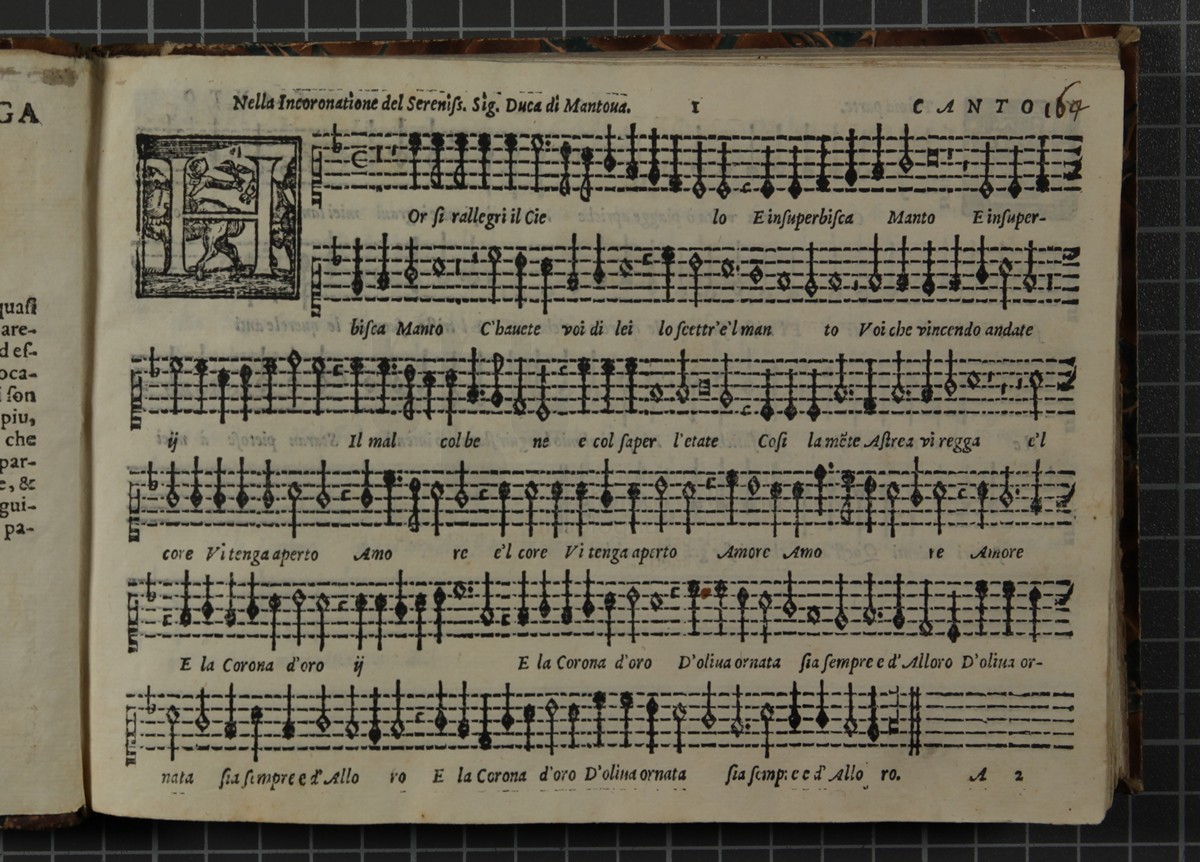 GA
quasi
are-
d es-
oca-
i son
piu,
che
par-
e, &
gui-
pa-
Nella Incoronatione del Sereniſs. Sig. Duca di Mantoua. 1 CANTO 164
H
Or ſi rallegri il Cie lo E inſuperbiſca Manto E inſuper-
biſca Manto C'hauete voi di lei lo ſcettr'e'l man to Voi che vincendo andate
ij Il mal col be ne e col ſaper l'etate Coſi la mẽte Aſtrea vi regga e'l
core Vi tenga aperto Amo re e'l core Vi tenga aperto Amore Amo re Amore
E la Corona d'oro ij E la Corona d'oro D'oliua ornata ſia ſempre e d'Alloro D'oliua or-
nata ſia ſempre e d'Allo ro E la Corona d'oro D'oliua ornata ſia ſempre e d'Allo ro. A 2